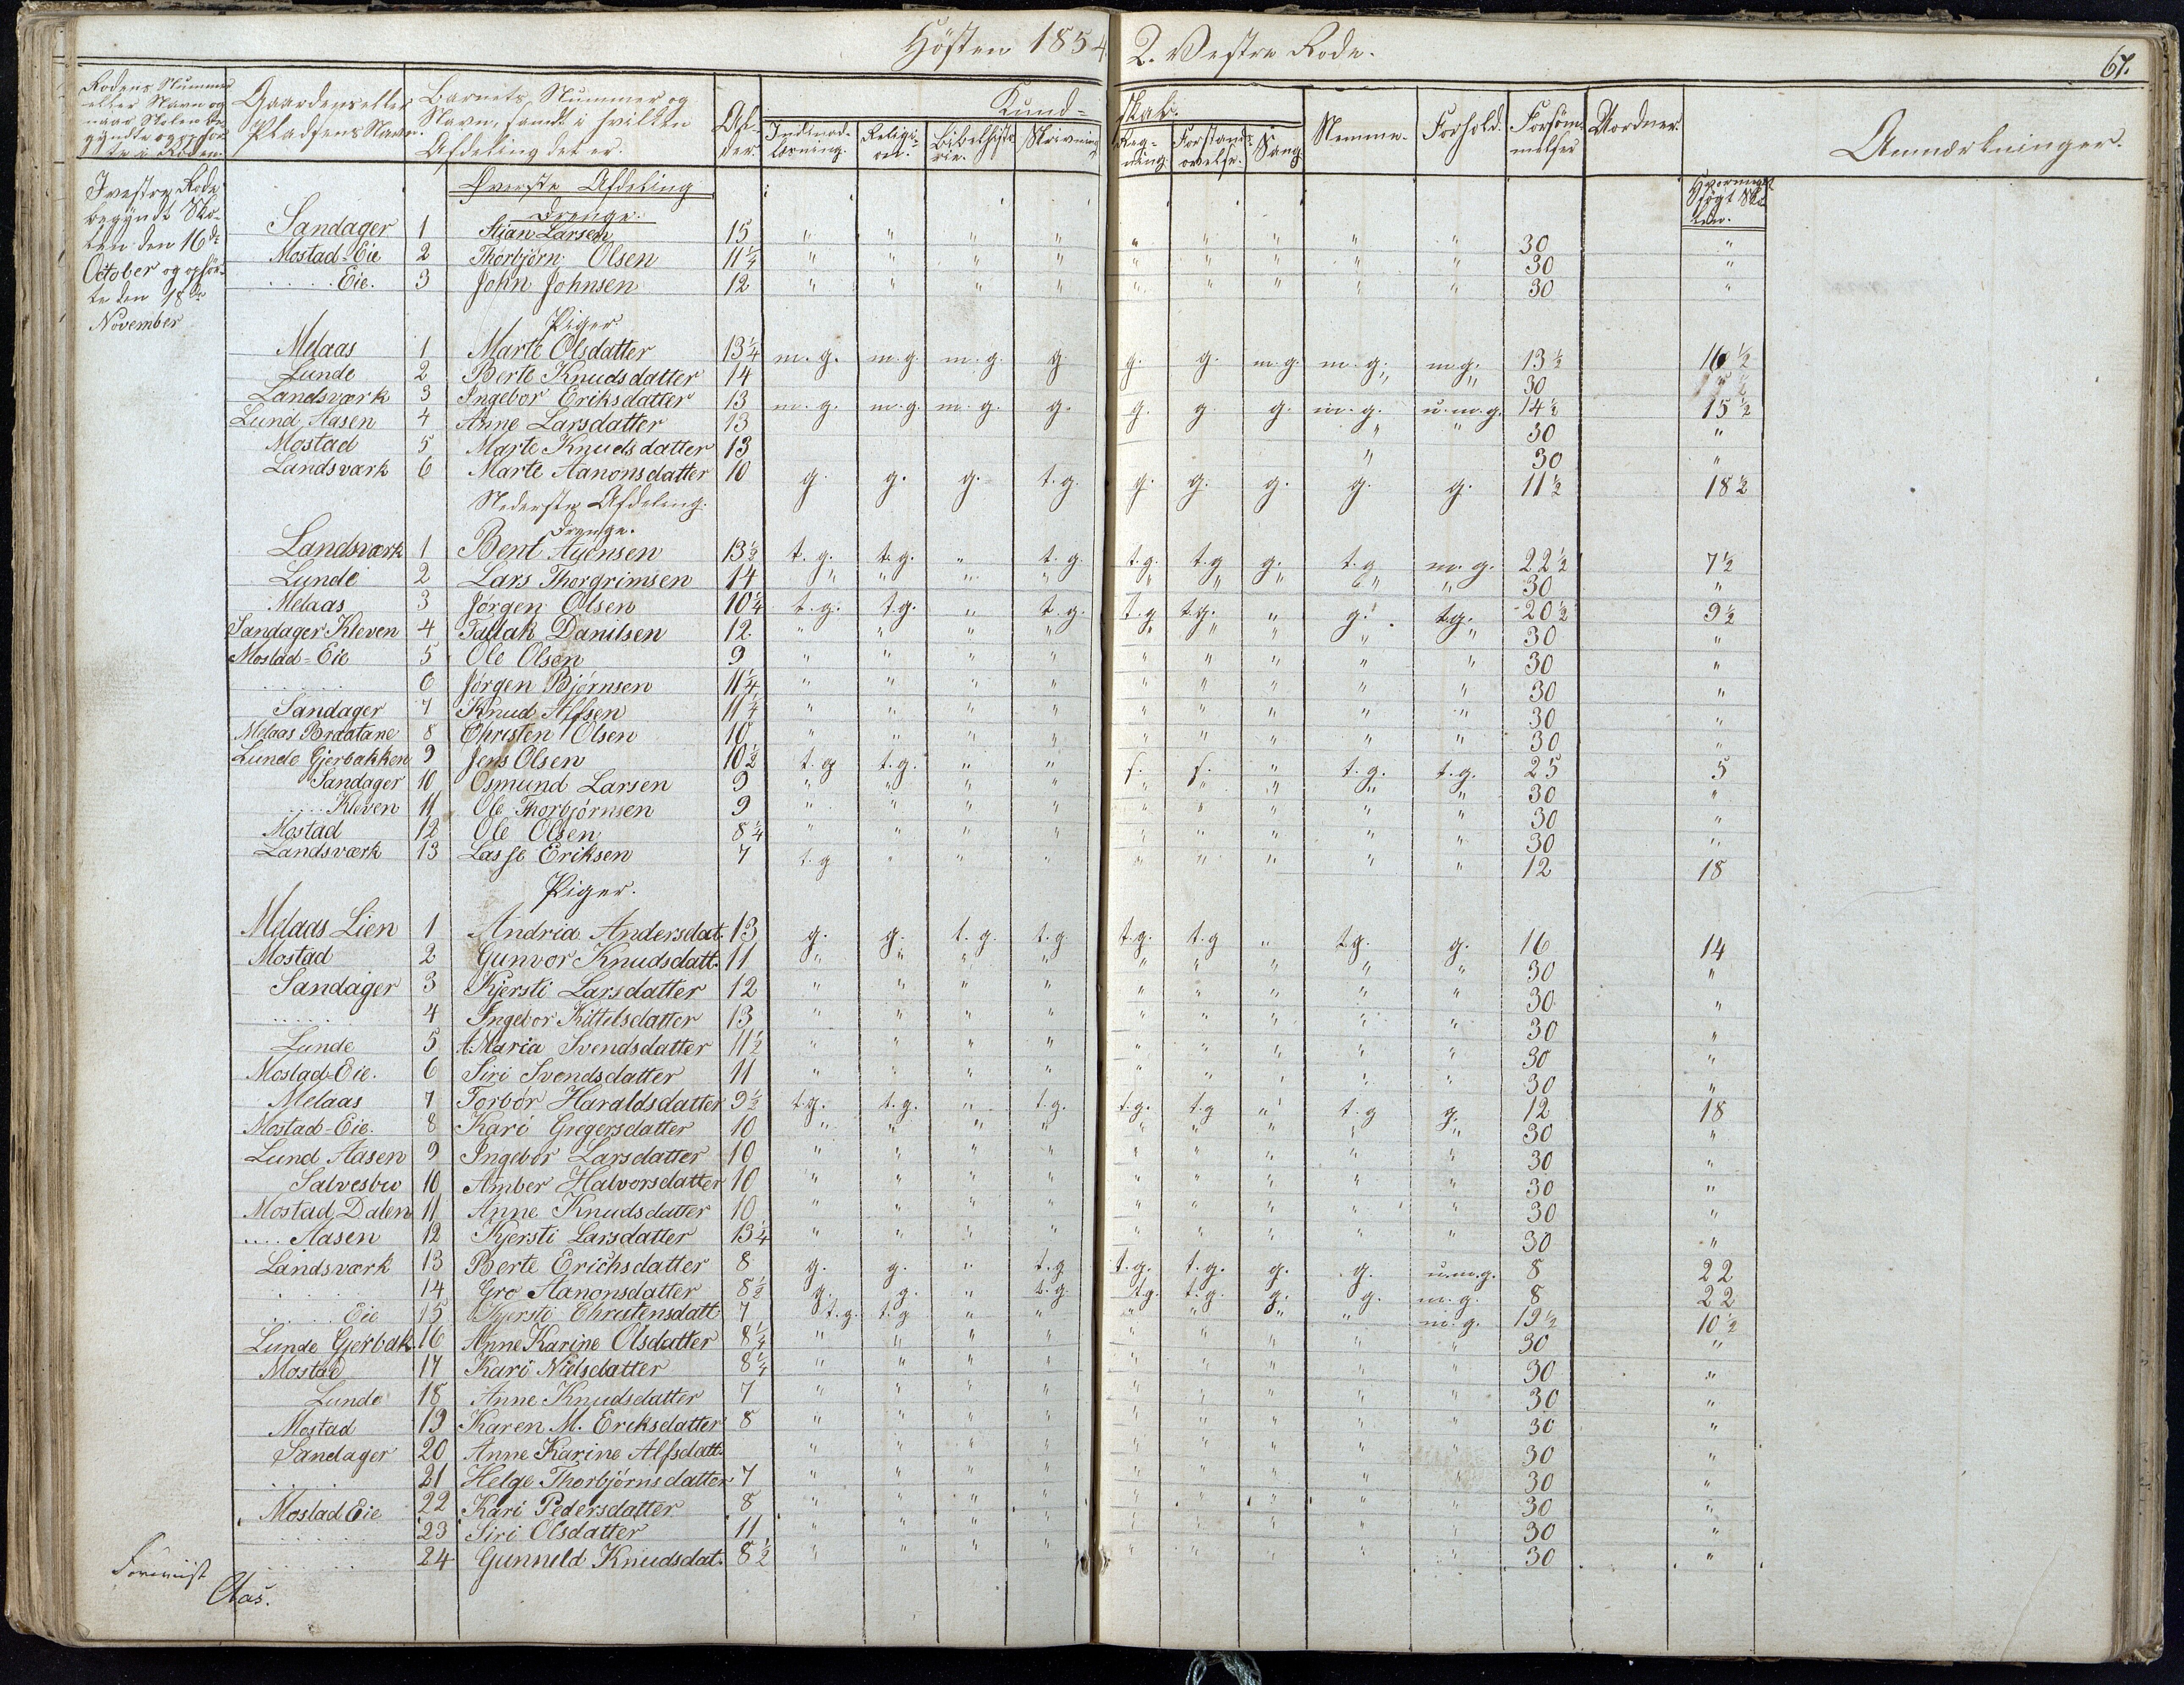 Hösten 1854 2. Vestre Rode. 67.
Rodens Nummer eller Navn og naar Skolen begyndte og ophørte i Roden.
Gaardens eller Pladsens Navn.
Barnets Nummer og Navn, samt i hvilken Afdeling det er.
Alder.
Kundskab.
Indenadlæsning. Religion. Bibelhistorie. Skrivning Regning. Forstandsøvelse. Sang
Nemme. Forhold. Forsømmelser Uordner. Anmærkninger.
I vestre Rode begyndt Skolen den 16de October og ophørte den 18de November
Hvormeget søgt Skolen.
Øverste Afdeling
Drenge.
Sandager 1 Stian Larsen 15 " " " " " " " " " 30 "
Mostad-Eie 2 Thorbjörn Olsen 11 1/4 " " " " " " " " " 30 "
.... Eie. 3 John Johnsen 12 " " " " " " " " " 30 "
Piger.
Melaas 1 Marte Olsdatter 13 1/4 m.g. m.g. m.g. g. g. g. m.g. m.g. m.g. 13 1/2 16 1/2
Lunde 2 Berte Knudsdatter 14 " " 30
Landsværk 3 Ingebor Eriksdatter 13 m.g. m.g. m.g. g. g. g. g. m.g. u.m.g. 14 1/2 15 1/2
Lund Aasen 4 Anne Larsdatter 13 " " 30 "
Mostad 5 Marte Knudsdatter 13 " 30 "
Landsværk 6 Marte Aanonsdatter 10 g. g. g. t.g. g. g. g. g. g. 11 1/2 18 1/2
Nederste Afdeling.
Drenge.
Landsværk 1 Bent Auensen 13 1/2 t.g. t.g. " t.g. t.g. t.g g. t.g m.g. 22 1/2 7 1/2
Lunde 2 Lars Thorgrimsen 14 " " " " " " " " " 30 "
Melaas 3 Jörgen Olsen 10 1/4 t.g. t.g. " t.g. t.g t.g. " g. t.g. 20 1/2 9 1/2
Sandager Kleven 4 Tallak Danilsen 12 " " " " " " " " " 30 "
Mostad-Eie 5 Ole Olsen 9 " " " " " " " " " 30 "
...... 6 Jörgen Bjørnsen 11 1/4 " " " " " " " " " 30 "
Sandager 7 Knud Alfsen 11 1/4 " " " " " " " " " 30 "
Melaas Braatane 8 Christen Olsen 10 " " " " " " " " " 30 "
Lunde Gjerbakken 9 Jens Olsen 10 1/2 t.g t.g. " " f. f. " t.g. t.g. 25 5
Sandager 10 Osmund Larsen 9 " " " " " " " " " 30 "
.... Kleven 11 Ole Thorbjörnsen 9 " " " " " " " " " 30 "
Mostad 12 Ole Olsen 8 1/4 " " " " " " " " " 30 "
Landsværk 13 Lasse Eriksen 7 t.g " " " " " " " " 12 18
Piger.
Melaas Lien 1 Andria Andersdat. 13 g. g. t.g. t.g. t.g. t.g " t.g. g. 16 14
Mostad 2 Gunvor Knudsdatt. 11 " " " " " " " " " 30 "
Sandager 3 Kjersti Larsdatter 12 " " " " " " " " " 30 "
..... 4 Ingebor Kittelsdatter 13 " " " " " " " " " 30 "
Lunde 5 A. Maria Svendsdatter 11 1/2 " " " " " " " " " 30 "
Mostad-Eie. 6 Siri Svendsdatter 11 " " " " " " " " " 30 "
Melaas 7 Torbör Haraldsdatter 9 1/2 t.g. t.g. " t.g. t.g. t.g " t.g g. 12 18
Mostad-Eie. 8 Kari Gregersdatter 10 " " " " " " " " " 30 "
Lund Aasen 9 Ingebor Larsdatter 10 " " " " " " " " " 30 "
Salvesbu 10 Amber Halvorsdatter 10 " " " " " " " " " 30 "
Mostad Dalen 11 Anne Knudsdatter 10 " " " " " " " " " 30 "
.... Aasen 12 Kjersti Larsdatter 13 1/4 " " " " " " " " " 30 "
Landsværk 13 Berte Erichsdatter 8 g. g. " t.g t.g. t.g. g. g. u.m.g. 8 22
.... 14 Gro Aanonsdatter 8 1/2 g. g. " t.g. t.g. t.g. g. g. m.g. 8 22
.... Eie 15 Kjersti Christensdatt 7 t.g. t.g " " " " " " m.g. 19 1/2 10 1/2
Lunde Gjerbak. 16 Anne Karine Olsdatter 8 1/4 " " " " " " " " " 30 "
Mostad 17 Kari Nielsdatter 8 1/4 " " " " " " " " " 30 "
Lunde 18 Anne Knudsdatter 7 " " " " " " " " " 30 "
Mostad 19 Karen M. Eriksdatter 8 " " " " " " " " " 30 "
Sandager 20 Anne Karine Alfsdatt. " " " " " " " " " 30 "
.... 21 Helge Thorbjörnsdatter 7 " " " " " " " " " 30 "
Mostad Eie 22 Kari Pedersdatter 8 " " " " " " " " " 30 "
.... 23 Siri Olsdatter 11 " " " " " " " " " 30 "
.... 24 Gunnild Knudsdat. 8 1/2 " " " " " " " " " 30 "
Aas.